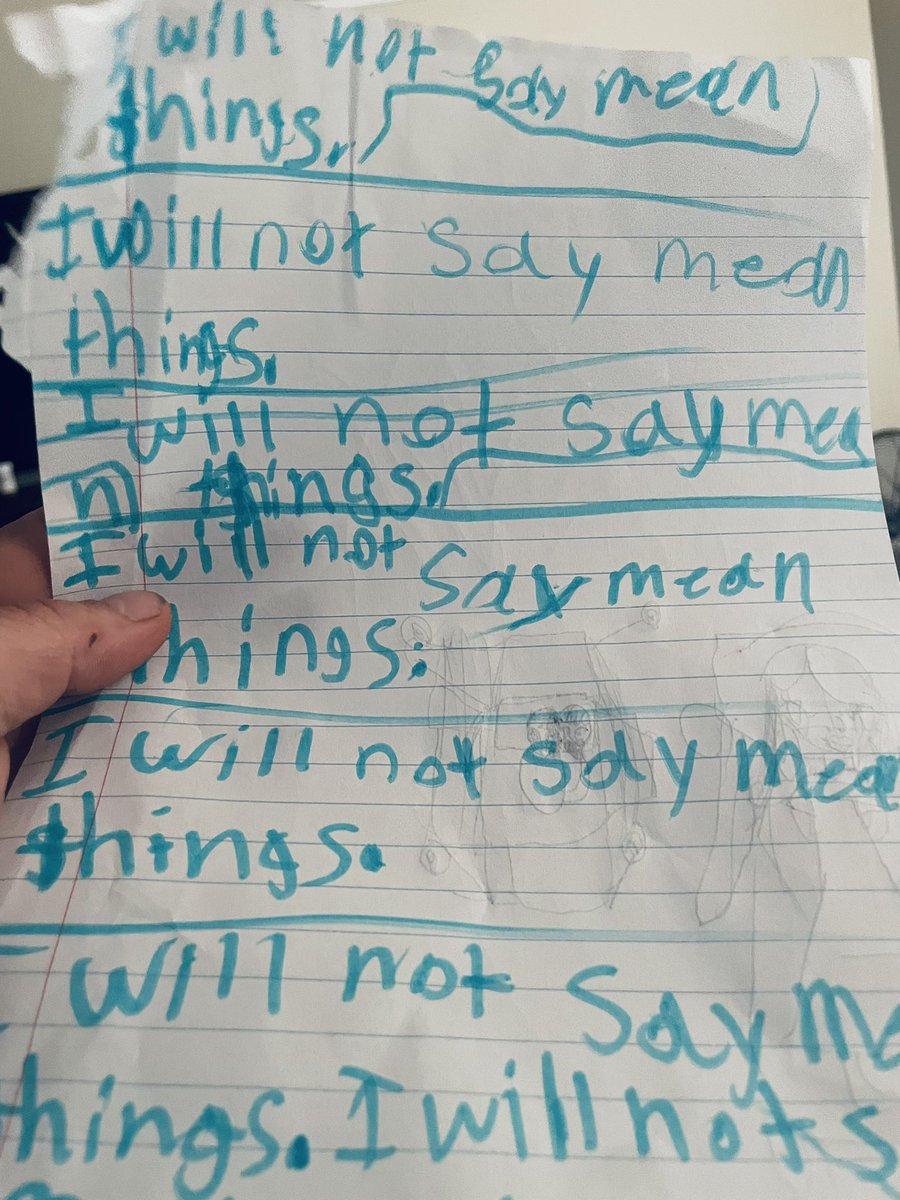 I will not say mean
things.
I will not say mean
things.
I will not say mea
n things.
I will not say mean
things.
I will not say mean
things.
I will not say me
things. I will not s